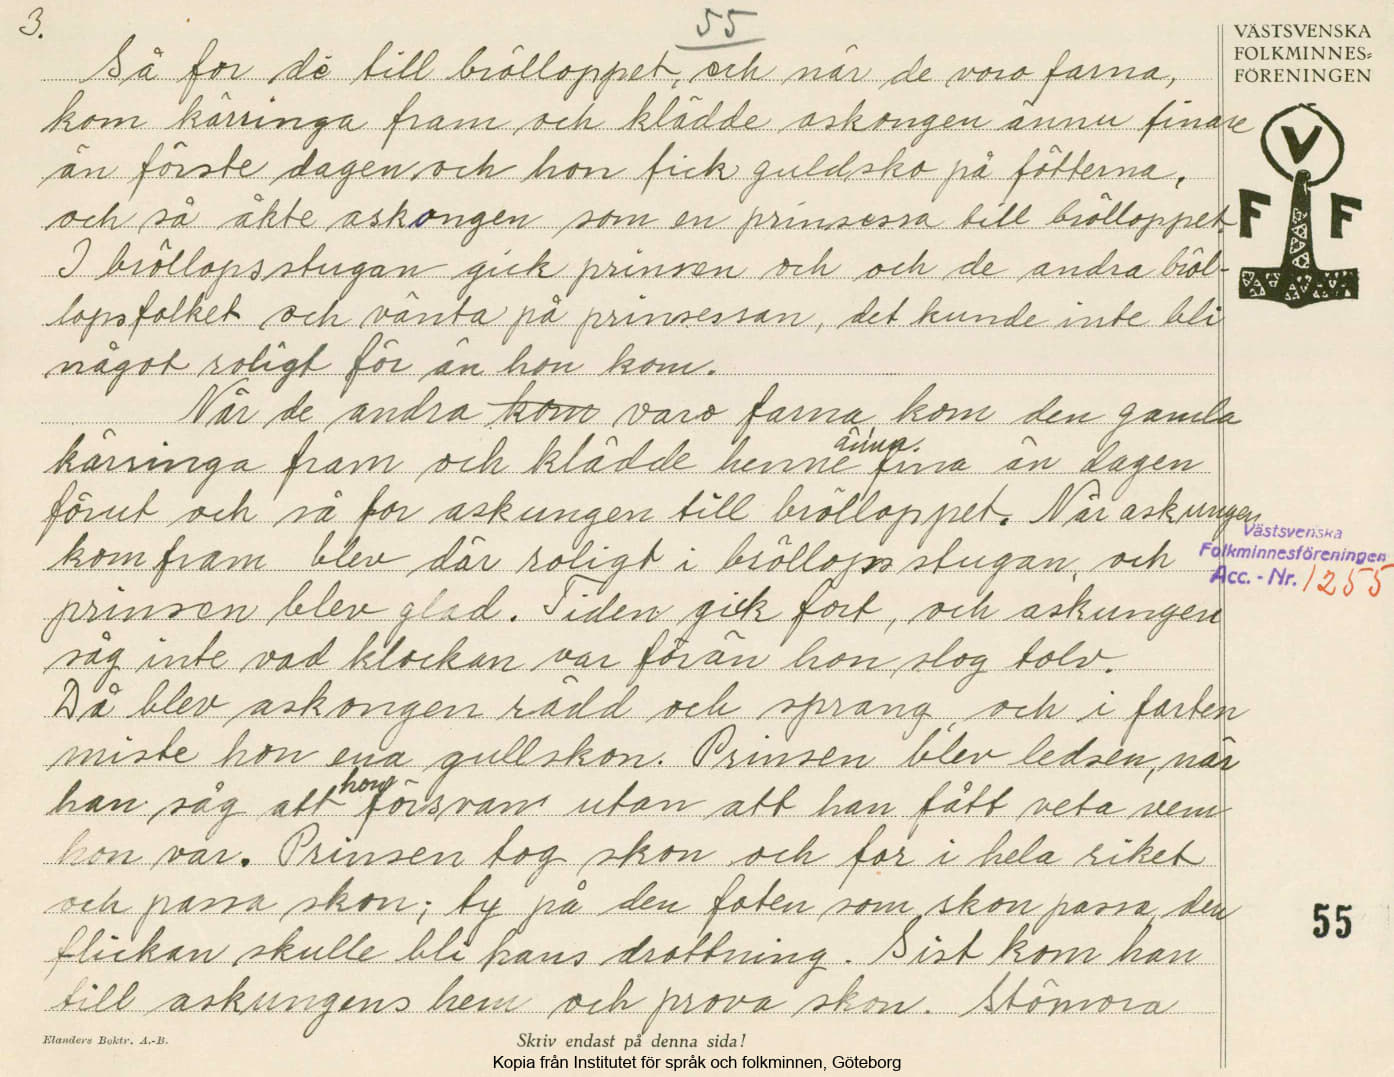 3.
55
VÄSTSVENSKA
FOLKMINNES=
FÖRENINGEN
V
F F
Så for de till brölloppet, och när de voro farna,
kom kärringa fram och klädde askongen ännu finare
än förste dagen, och hon fick guldsko på fötterna,
och så åkte askongen som en prinsessa till brölloppet.
I bröllopsstugan gick prinsen och och de andra bröl-
lopsfolket och vänta på prinsessan, det kunde inte bli
något roligt för än hon kom.
När de andra kom varo farna, kom den gamla
kärringa fram och klädde henne änna fina än dagen
förut och så for askungen till brölloppet. När askungen
kom fram blev där roligt i bröllops stugan, och
prinsen blev glad. Tiden gick fort, och askungen
såg inte vad klockan var förän hon slog tolv.
Då blev askongen rädd och sprang, och i farten
miste hon ena gullskon. Prinsen blev ledsen, när
han såg att hon försvann utan att han fått veta vem
hon var. Prinsen tog skon och for i hela riket
och passa skon; ty på den foten som skon passa, den
flickan skulle bli hans drottning. Sist kom han
till askungens hem och prova skon. Stömora
Västsvenska
Folkminnesföreningen
Acc. - Nr. 1255
55
Elanders Boktr. A.-B.
Skriv endast på denna sida!
Kopia från Institutet för språk och folkminnen, Göteborg